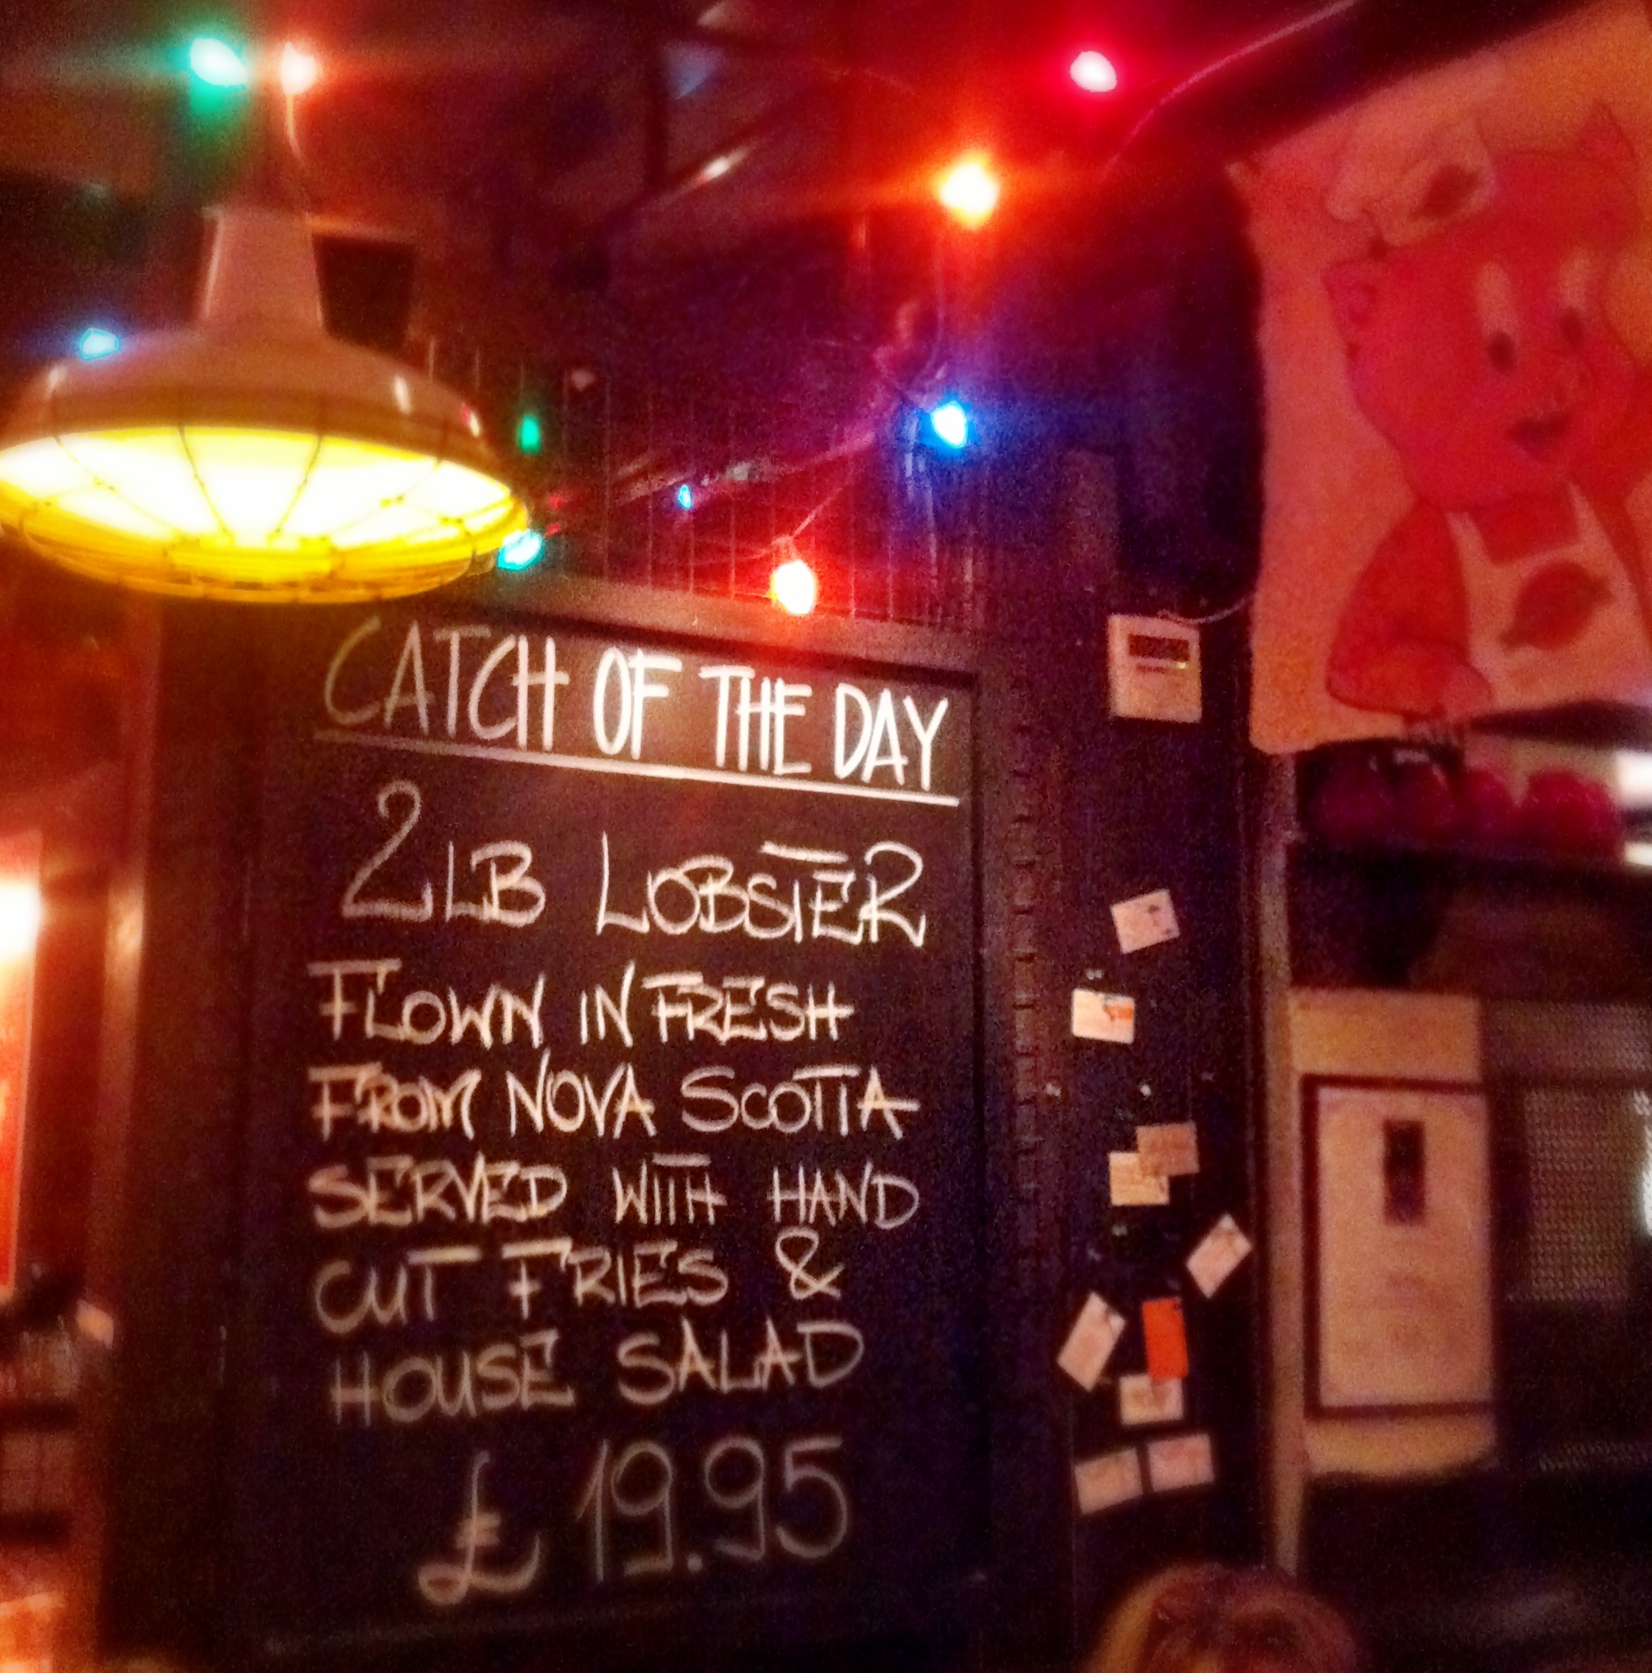 CATCH OF THE DAY
2 LB LOBSTER
FLOWN IN FRESH
FROM NOVA SCOTIA
SERVED WITH HAND
CUT FRIES &
HOUSE SALAD
£ 19.95